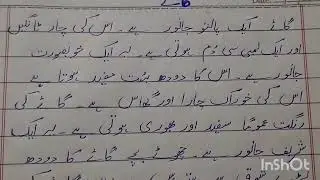 گائے
گائے ایک پالتو جانور ہے۔ اس کی چار ٹانگیں
اور ایک لمبی سی دُم ہوتی ہے۔ یہ ایک خوبصورت
جانور ہے۔ اس کا دودھ بہت مفید ہوتا ہے
اس کی خوراک چارا اور گھاس ہے۔ گائے کی
رنگت عموماً سفید اور بھوری ہوتی ہے۔ یہ ایک
شریف جانور ہے۔ چھوٹے بچے گائے کا دودھ
InShot